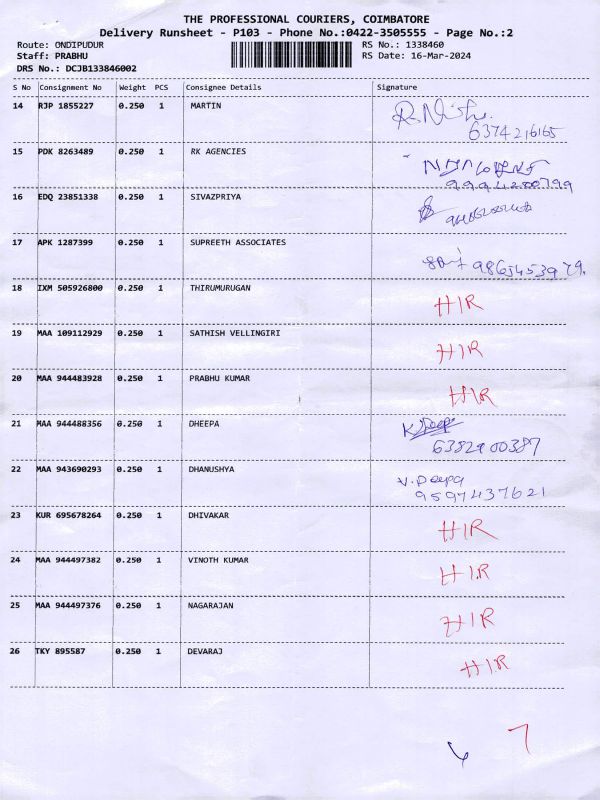 THE PROFESSIONAL COURIERS, COIMBATORE
Delivery Runsheet - P103 - Phone No.:0422-3505555 - Page No.:2
Route: ONDIPUDUR RS No.: 1338460
Staff: PRABHU RS Date: 16-Mar-2024
DRS No.: DCJB133846002
S No Consignment No Weight PCS Consignee Details Signature
14 RJP 1855227 0.250 1 MARTIN
6374216165
15 PDK 8263489 0.250 1 RK AGENCIES
9994280799
16 EDQ 23851338 0.250 1 SIVAZPRIYA
17 APK 1287399 0.250 1 SUPREETH ASSOCIATES
9865453979.
18 IXM 505926800 0.250 1 THIRUMURUGAN HIR
19 MAA 109112929 0.250 1 SATHISH VELLINGIRI HIR
20 MAA 944483928 0.250 1 PRABHU KUMAR HIR
21 MAA 944488356 0.250 1 DHEEPA K.Deepa
6382900387
22 MAA 943690293 0.250 1 DHANUSHYA V.Deepa
9597437621
23 KUR 695678264 0.250 1 DHIVAKAR HIR
24 MAA 944497382 0.250 1 VINOTH KUMAR HIR
25 MAA 944497376 0.250 1 NAGARAJAN HIR
26 TKY 895587 0.250 1 DEVARAJ HIR
6 7